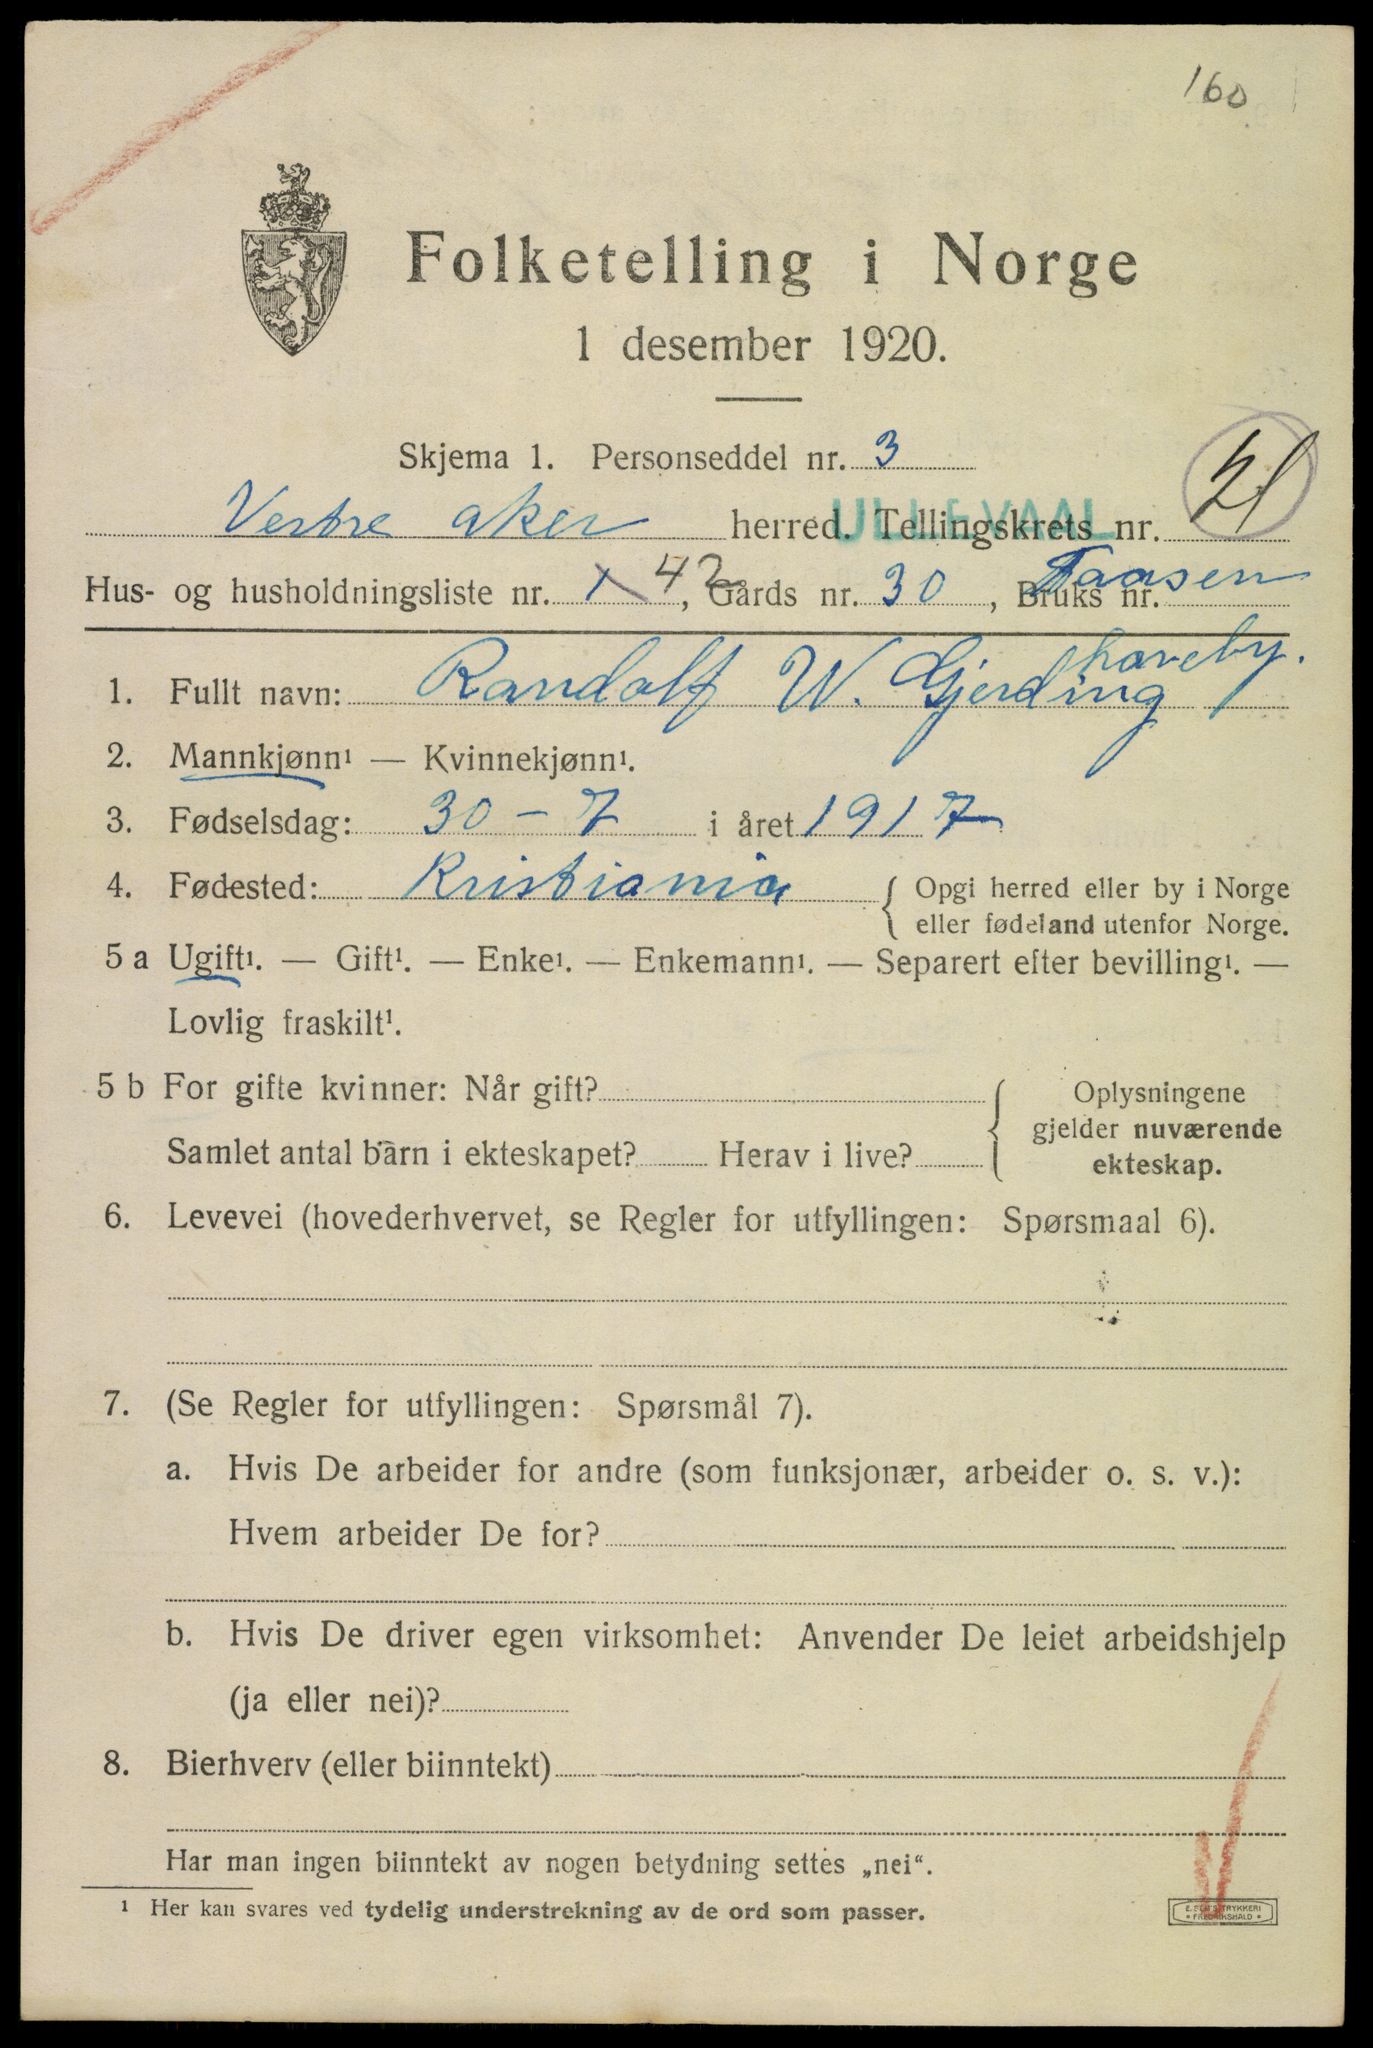 160
Folketelling i Norge
1 desember 1920.
Skjema 1. Personseddel nr. 3
ULLEVAAL
Vestre aker herred. Tellingskrets nr. 21
Hus- og husholdningsliste nr. 1 42, Gårds nr. 30, Bruks nr. Taasen
haveby.
1. Fullt navn: Randolf W. Gjerding
2. Mannkjønn¹ — Kvinnekjønn¹.
3. Fødselsdag: 30 – 7 i året 1917
4. Fødested: Kristiania { Opgi herred eller by i Norge
eller fødeland utenfor Norge.
5 a Ugift¹. — Gift¹. — Enke¹. — Enkemann¹. — Separert efter bevilling¹. —
Lovlig fraskilt¹.
5 b For gifte kvinner: Når gift?
Samlet antal barn i ekteskapet? Herav i live?
{ Oplysningene
gjelder nuværende
ekteskap.
6. Levevei (hovederhvervet, se Regler for utfyllingen: Spørsmaal 6).
7. (Se Regler for utfyllingen: Spørsmål 7).
a. Hvis De arbeider for andre (som funksjonær, arbeider o. s. v.):
Hvem arbeider De for?
b. Hvis De driver egen virksomhet: Anvender De leiet arbeidshjelp
(ja eller nei)?
8. Bierhverv (eller biinntekt)
Har man ingen biinntekt av nogen betydning settes „nei“.
¹ Her kan svares ved tydelig understrekning av de ord som passer.
TRYKKERI
• FREDRIKSHALD •